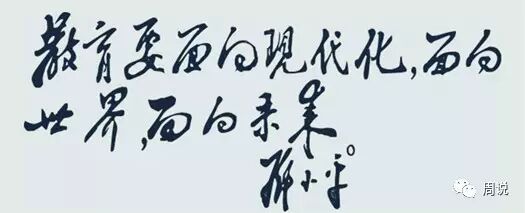 教育要面向现代化,面向
世界,面向未来。
邓小平
周说